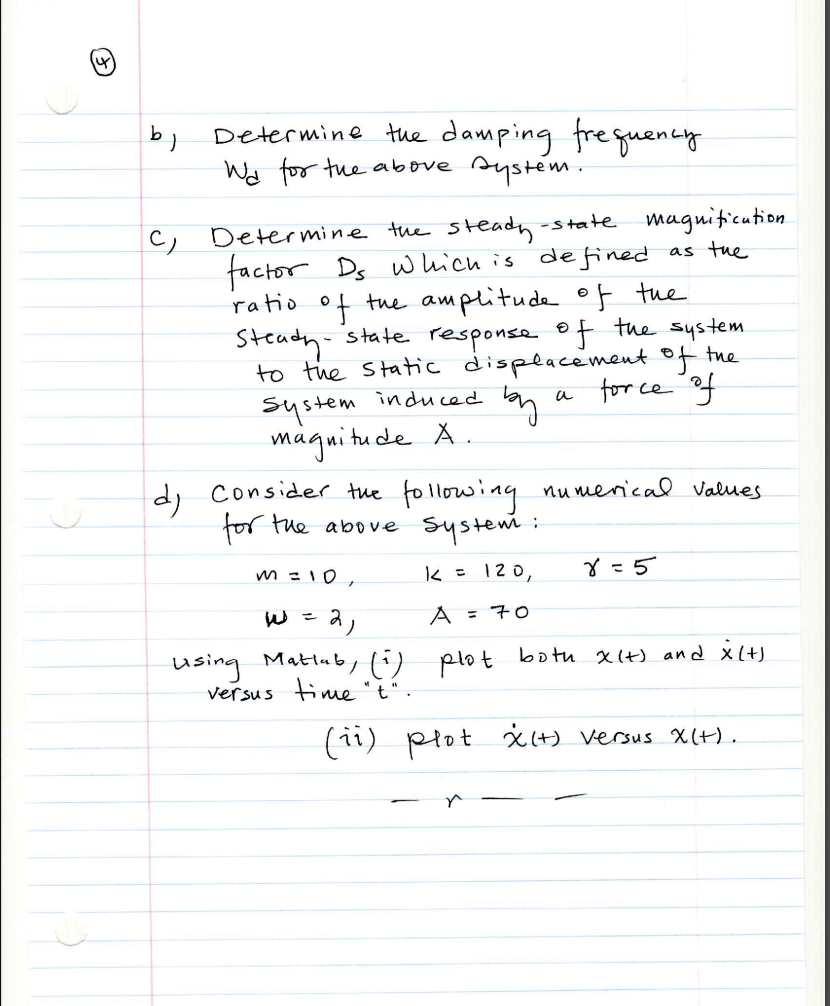 4
b) Determine the damping frequency
Wd for the above system.
c) Determine the steady-state magnification
factor Ds which is defined as the
ratio of the amplitude of the
steady-state response of the system
to the static displacement of the
system induced by a force of
magnitude A.
d) Consider the following numerical values
for the above system:
m = 10, k = 120, γ = 5
w = 2, A = 70
using Matlab, (i) plot both x(t) and ẋ(t)
versus time "t".
(ii) plot ẋ(t) versus x(t).